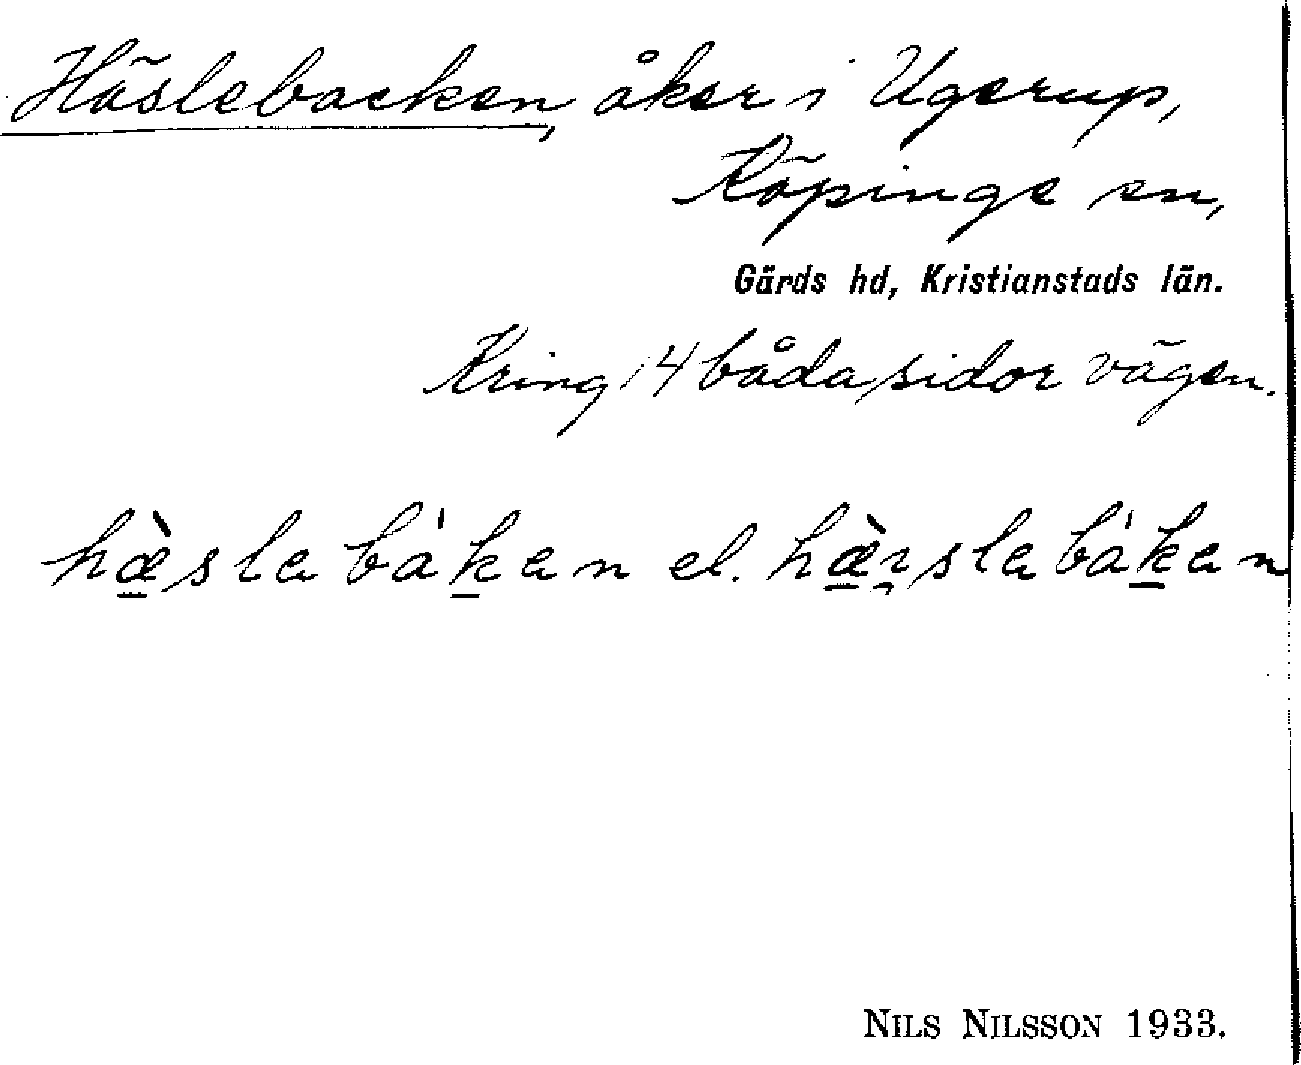 Häslebacken, åker i Ugerup,
Köpinge sn,
Gärds hd, Kristianstads län.
Kring 14 båda sidor vägen.
hæ̀slabákan el. hæ̀rslabákan
NILS NILSSON 1933.